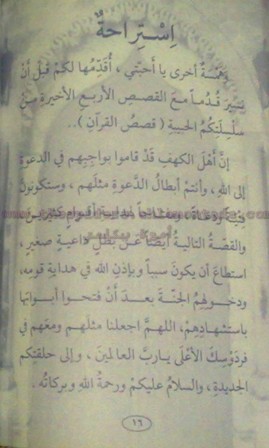 اِسْتِرَاحَةٌ
وَهَمْسَةٌ أخرى يا أحبّتي ، أُقَدِّمُها لكمْ قبلَ أنْ
نَسِيرَ قُدُماً معَ القصصِ الأربعِ الأخيرةِ منْ
سلْسِلَتِكُمُ الحبيبةِ ( قصصُ القرآنِ ) ..
إنَّ أهْلَ الكهفِ قدْ قاموا بواجبِهم في الدعوةِ
إلى اللهِ ، وأنتمْ أبطالُ الدَّعوةِ مثلَهم ، وستكونونَ
دُعَاةً ، ومفتاحاً لهدايةِ أقوامٍ كثيرينَ ،
والقصَّةُ التاليةُ أيضاً عنْ بطلٍ داعيةٍ صغيرٍ ،
استطاعَ أن يكونَ سبباً وبإذنِ اللهِ في هدايةِ قومه،
ودخولِهِمُ الجنّةَ بعدَ أنْ فتحوا أبوابَها
باستشهادِهِمْ، اللهمَّ اجعلنا مثلَهم ومعَهم في
فردَوْسِكَ الأعْلَى ياربَّ العالمينَ ، وإلى حلقتِكم
الجديدةِ، والسلامُ عليكمْ ورحمةُ اللهِ وبركاتُه .
١٦